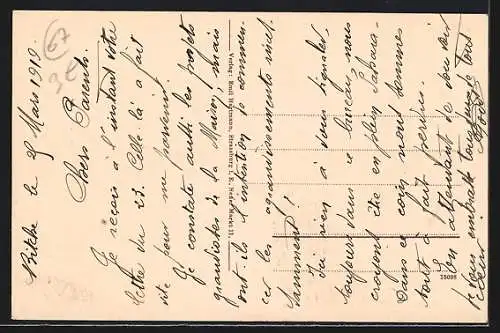 67
Bitche le 25 Mars 1919.
Chers Parents
Je reçois à l'instant votre
lettre du 23. Celle là a fait
vite pour me parvenir.
Je constate aussi les projets
grandioses de la Maison, mais
ont-ils l'intention de commen-
cer les agrandissements incel-
samment!
Ici rien à vous signaler,
toujours dans ce bureau, nous
croyons être en plein Sahara
dans ce coin, nous sommes
tout à fait perdus.
En attendant de vous lire
je vous embrasse tous de tout
cœur
Verlag: Emil Hartmann, Strassburg i. E., Neuer Markt 11.
15098